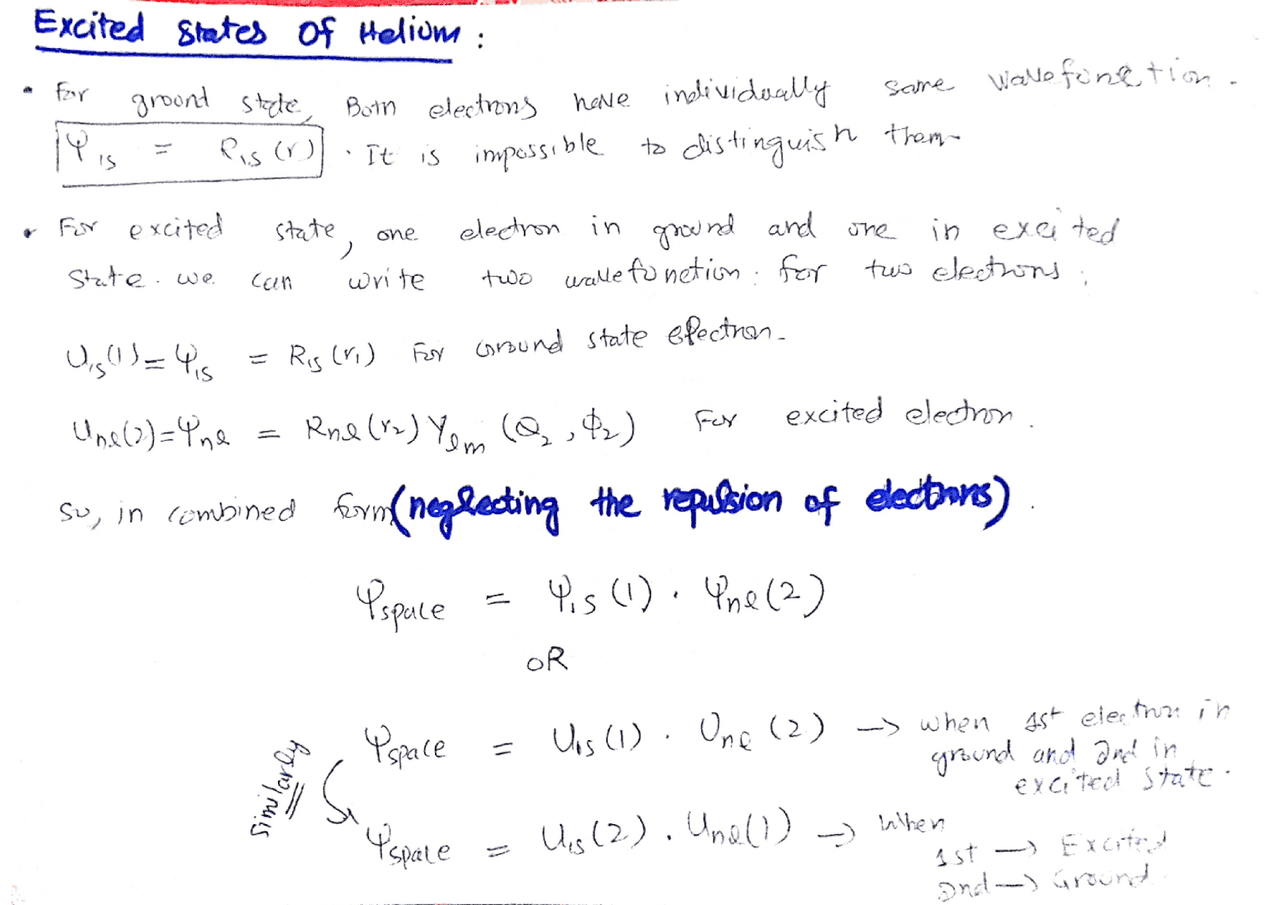 Excited States Of Helium :
• For ground state, Both electrons have individually same wavefunction.
Ψ1s = R1s (r) . It is impossible to distinguish them
• For excited state, one electron in ground and one in excited
State. we can write two wavefunction. for two electrons;
U1s(1) = Ψ1s = R1s (r1) For Ground state electron.
Unl(2) = Ψnl = Rnl (r2) Ylm (Θ2, Φ2) For excited electron.
So, in combined form (neglecting the repulsion of electrons).
Ψspace = Ψ1s (1) . Ψnl (2)
OR
Ψspace = U1s (1) . Unl (2) → when 1st electron in
ground and 2nd in
excited state.
Similarly
Ψspace = U1s (2) . Unl(1) → When
1st → Excited
2nd → Ground.